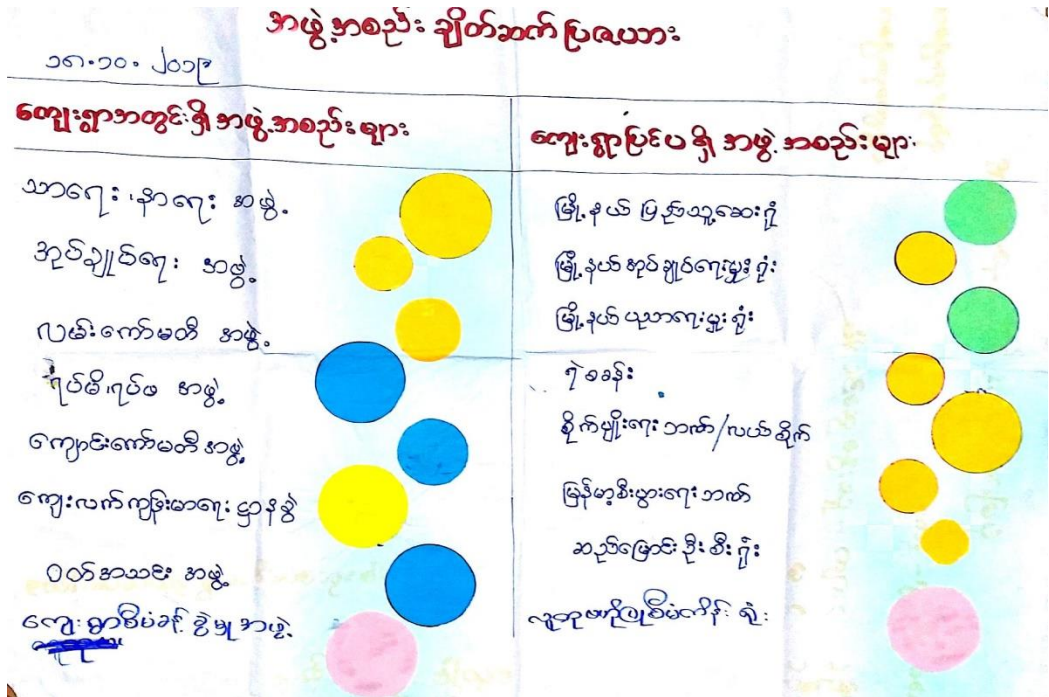 အဖွဲ့အစည်း ချိတ်ဆက် ပြဇယား
၁၈.၁၀.၂၀၁၉
ကျေးရွာအတွင်းရှိ အဖွဲ့အစည်းများ
သာရေး၊နာရေး အဖွဲ့
အုပ်ချုပ်ရေး အဖွဲ့
လမ်းကော်မတီ အဖွဲ့
ရပ်မိ၊ရပ်ဖ အဖွဲ့
ကျောင်းကော်မတီအဖွဲ့
ကျေးလက်ကျန်းမာရေး ဌာနခွဲ
ဝတ်အသင်း အဖွဲ့
ကျေးရွာစီမံခန့်ခွဲမှုအဖွဲ့
ကျေးရွာပြင်ပရှိ အဖွဲ့အစည်းများ
မြို့နယ် ပြည်သူ့ဆေးရုံ
မြို့နယ်အုပ်ချုပ်ရေးမှူးရုံး
မြို့နယ် ပညာရေးမှူးရုံး
ရဲစခန်း
စိုက်ပျိုးရေးဘဏ်/လယ်စိုက်
မြန်မာ့စီးပွားရေးဘဏ်
ဆည်မြောင်းဦးစီးရုံး
လူထုဗဟိုပြုစီမံကိန်းရုံး